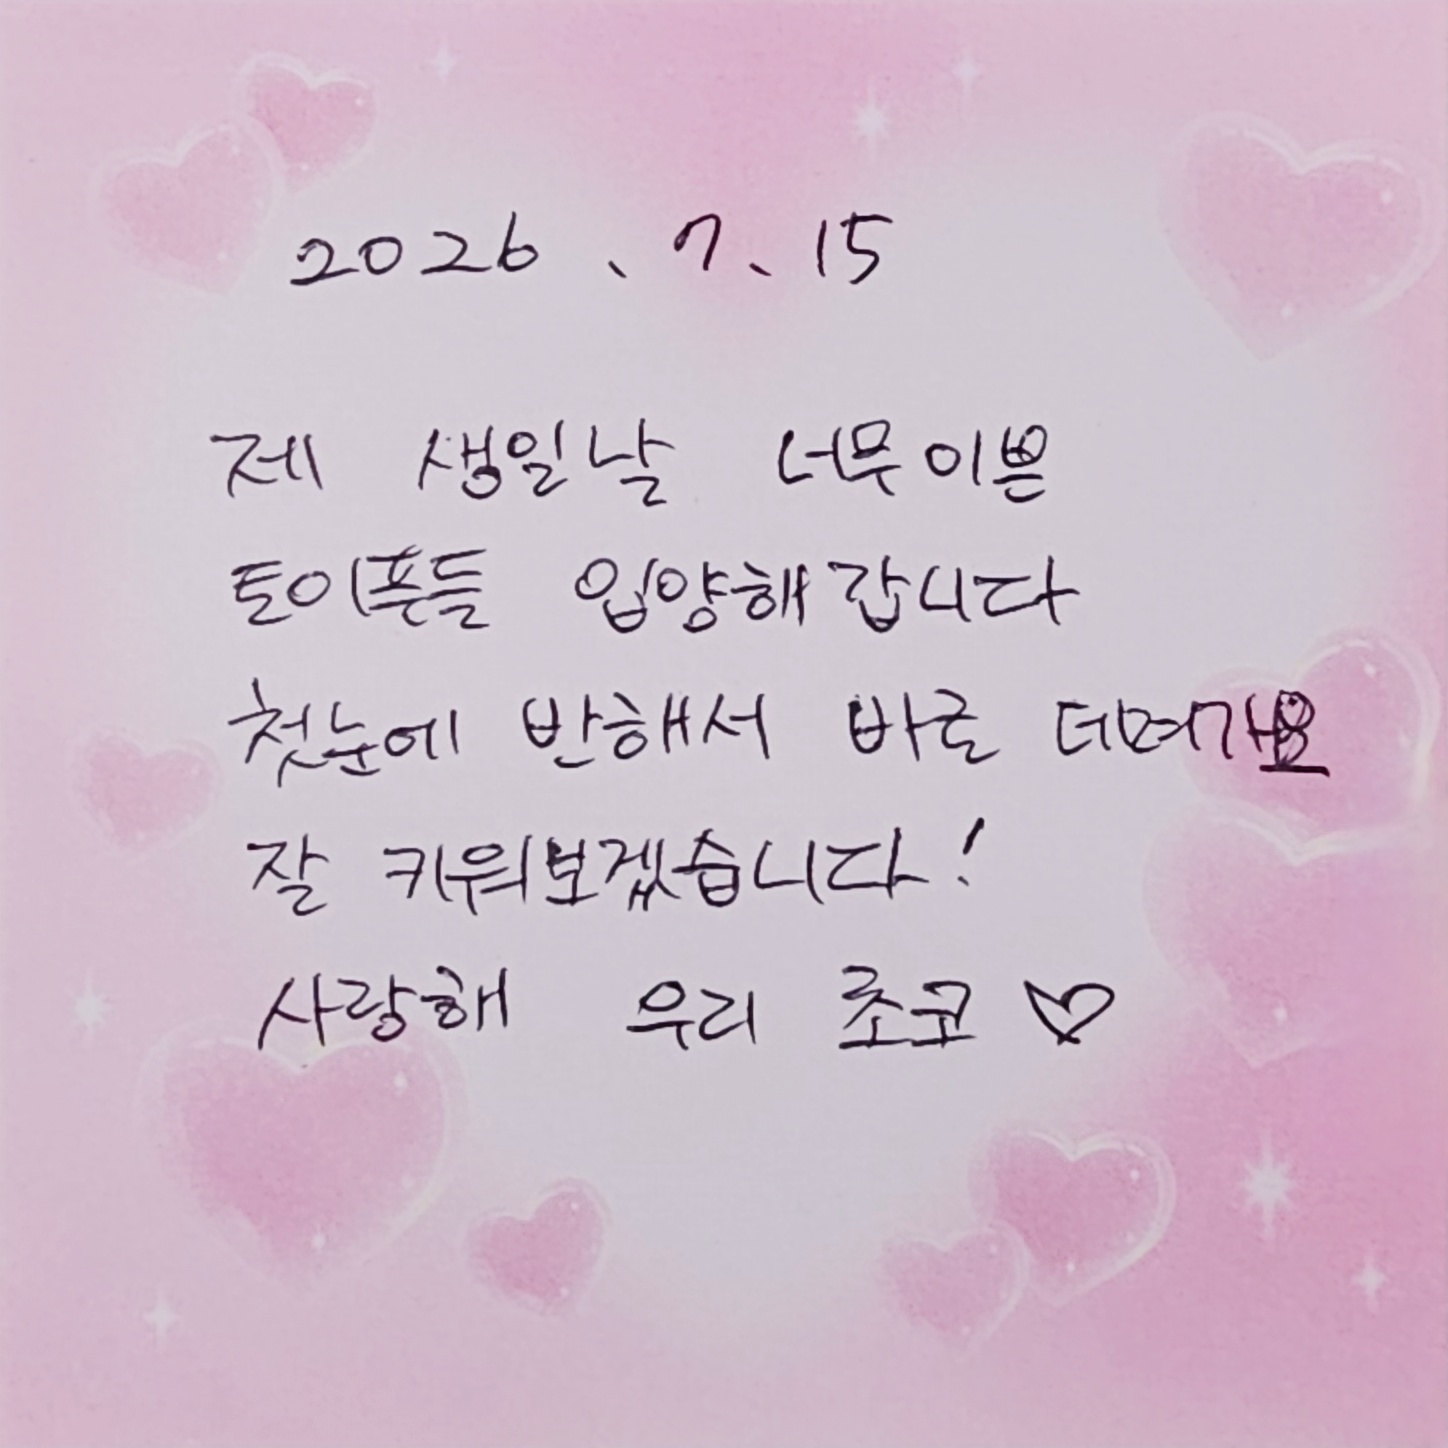 2026. 7. 15
제 생일날 너무이쁜
토이푸들 입양해갑니다
첫눈에 반해서 바로 데려가요
잘 키워보겠습니다!
사랑해 우리 초코 ♡